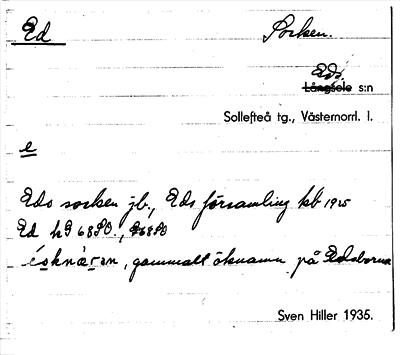 Ed Socken.
Eds
Långsele s:n
Sollefteå tg., Västernorrl. l.
e
Eds socken jb., Eds församling kb 1925
Ed
, gammalt öknamn på Edsborna
Sven Hiller 1935.